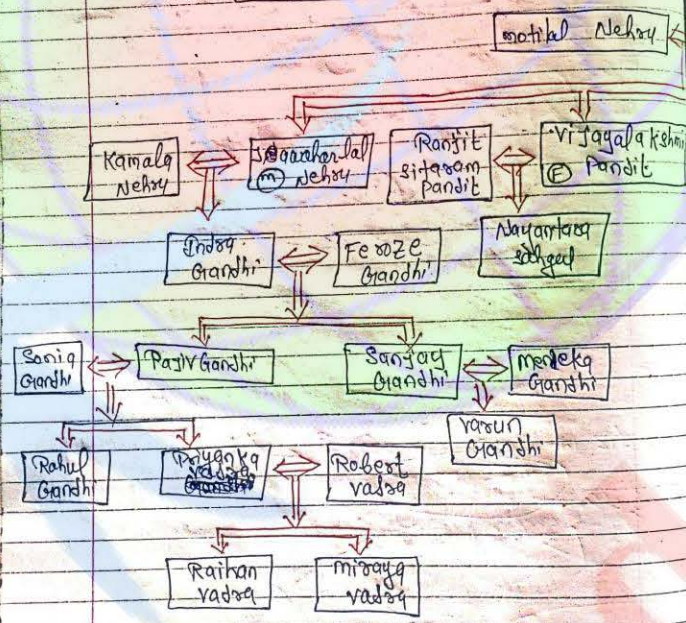 motilal Nehru
Kamala
Nehru
Jawaharlal
(m) Nehru
Ranjit
sitaram
Pandit
Vijayalakshmi
(F) Pandit
Indra
Gandhi
Feroze
Gandhi
Nayantara
sahgal
Sonia
Gandhi
Rajiv Gandhi
Sanjay
Gandhi
Meneka
Gandhi
Varun
Gandhi
Rahul
Gandhi
Priyanka
vadra
Robert
vadra
Raihan
vadra
miraya
vadra